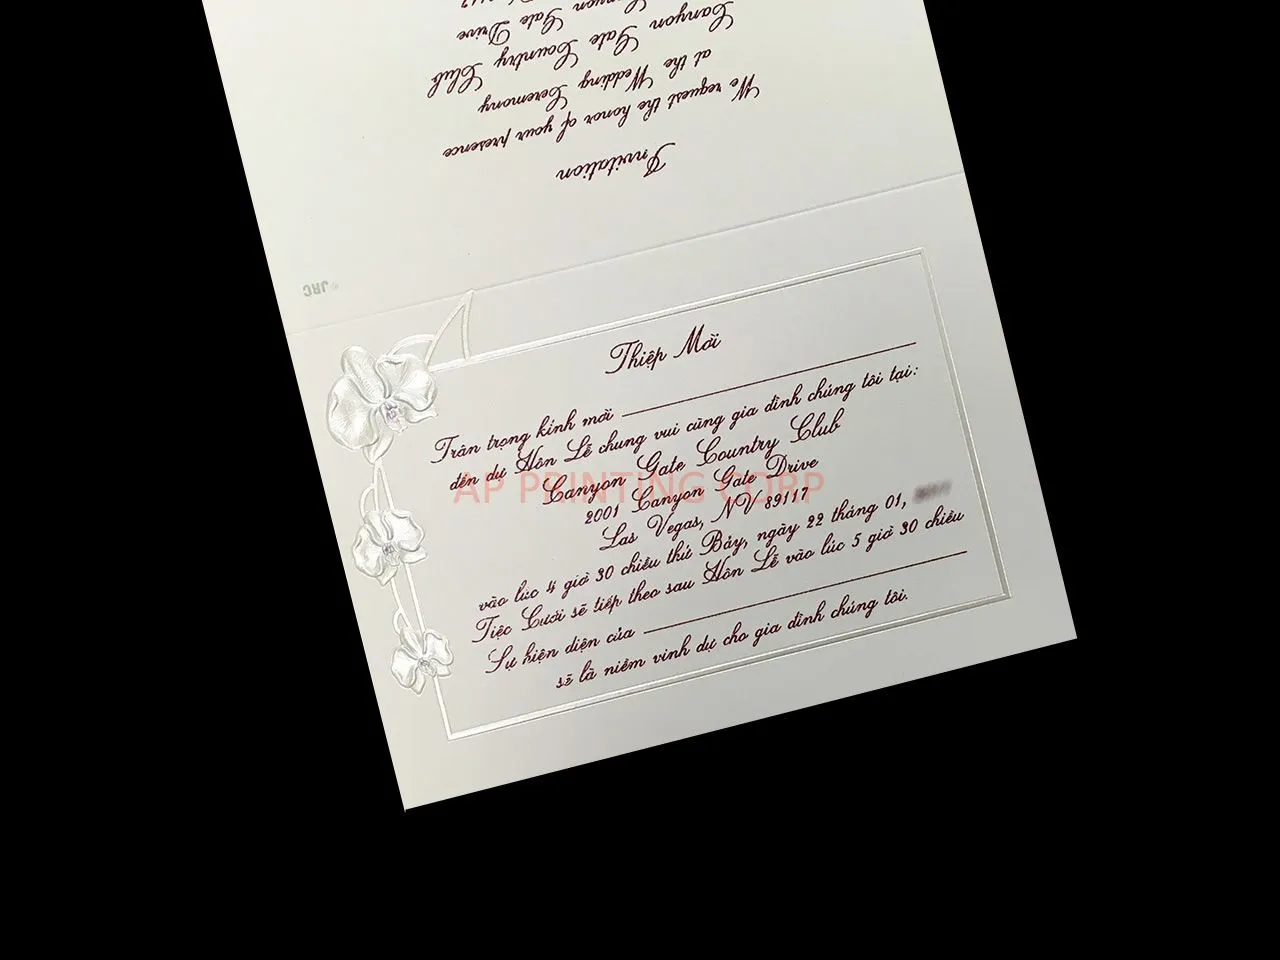 Canyon Gate Drive
Canyon Gate Country Club
at the Wedding Ceremony
We request the honor of your presence
Invitation
JRC
Thiệp Mời
Trân trọng kính mời
đến dự Hôn Lễ chung vui cùng gia đình chúng tôi tại:
Canyon Gate Country Club
2001 Canyon Gate Drive
Las Vegas, NV 89117
vào lúc 4 giờ 30 chiều thứ Bảy, ngày 22 tháng 01,
Tiệc Cưới sẽ tiếp theo sau Hôn Lễ vào lúc 5 giờ 30 chiều
Sự hiện diện của
sẽ là niềm vinh dự cho gia đình chúng tôi.
AP PRINTING CORP